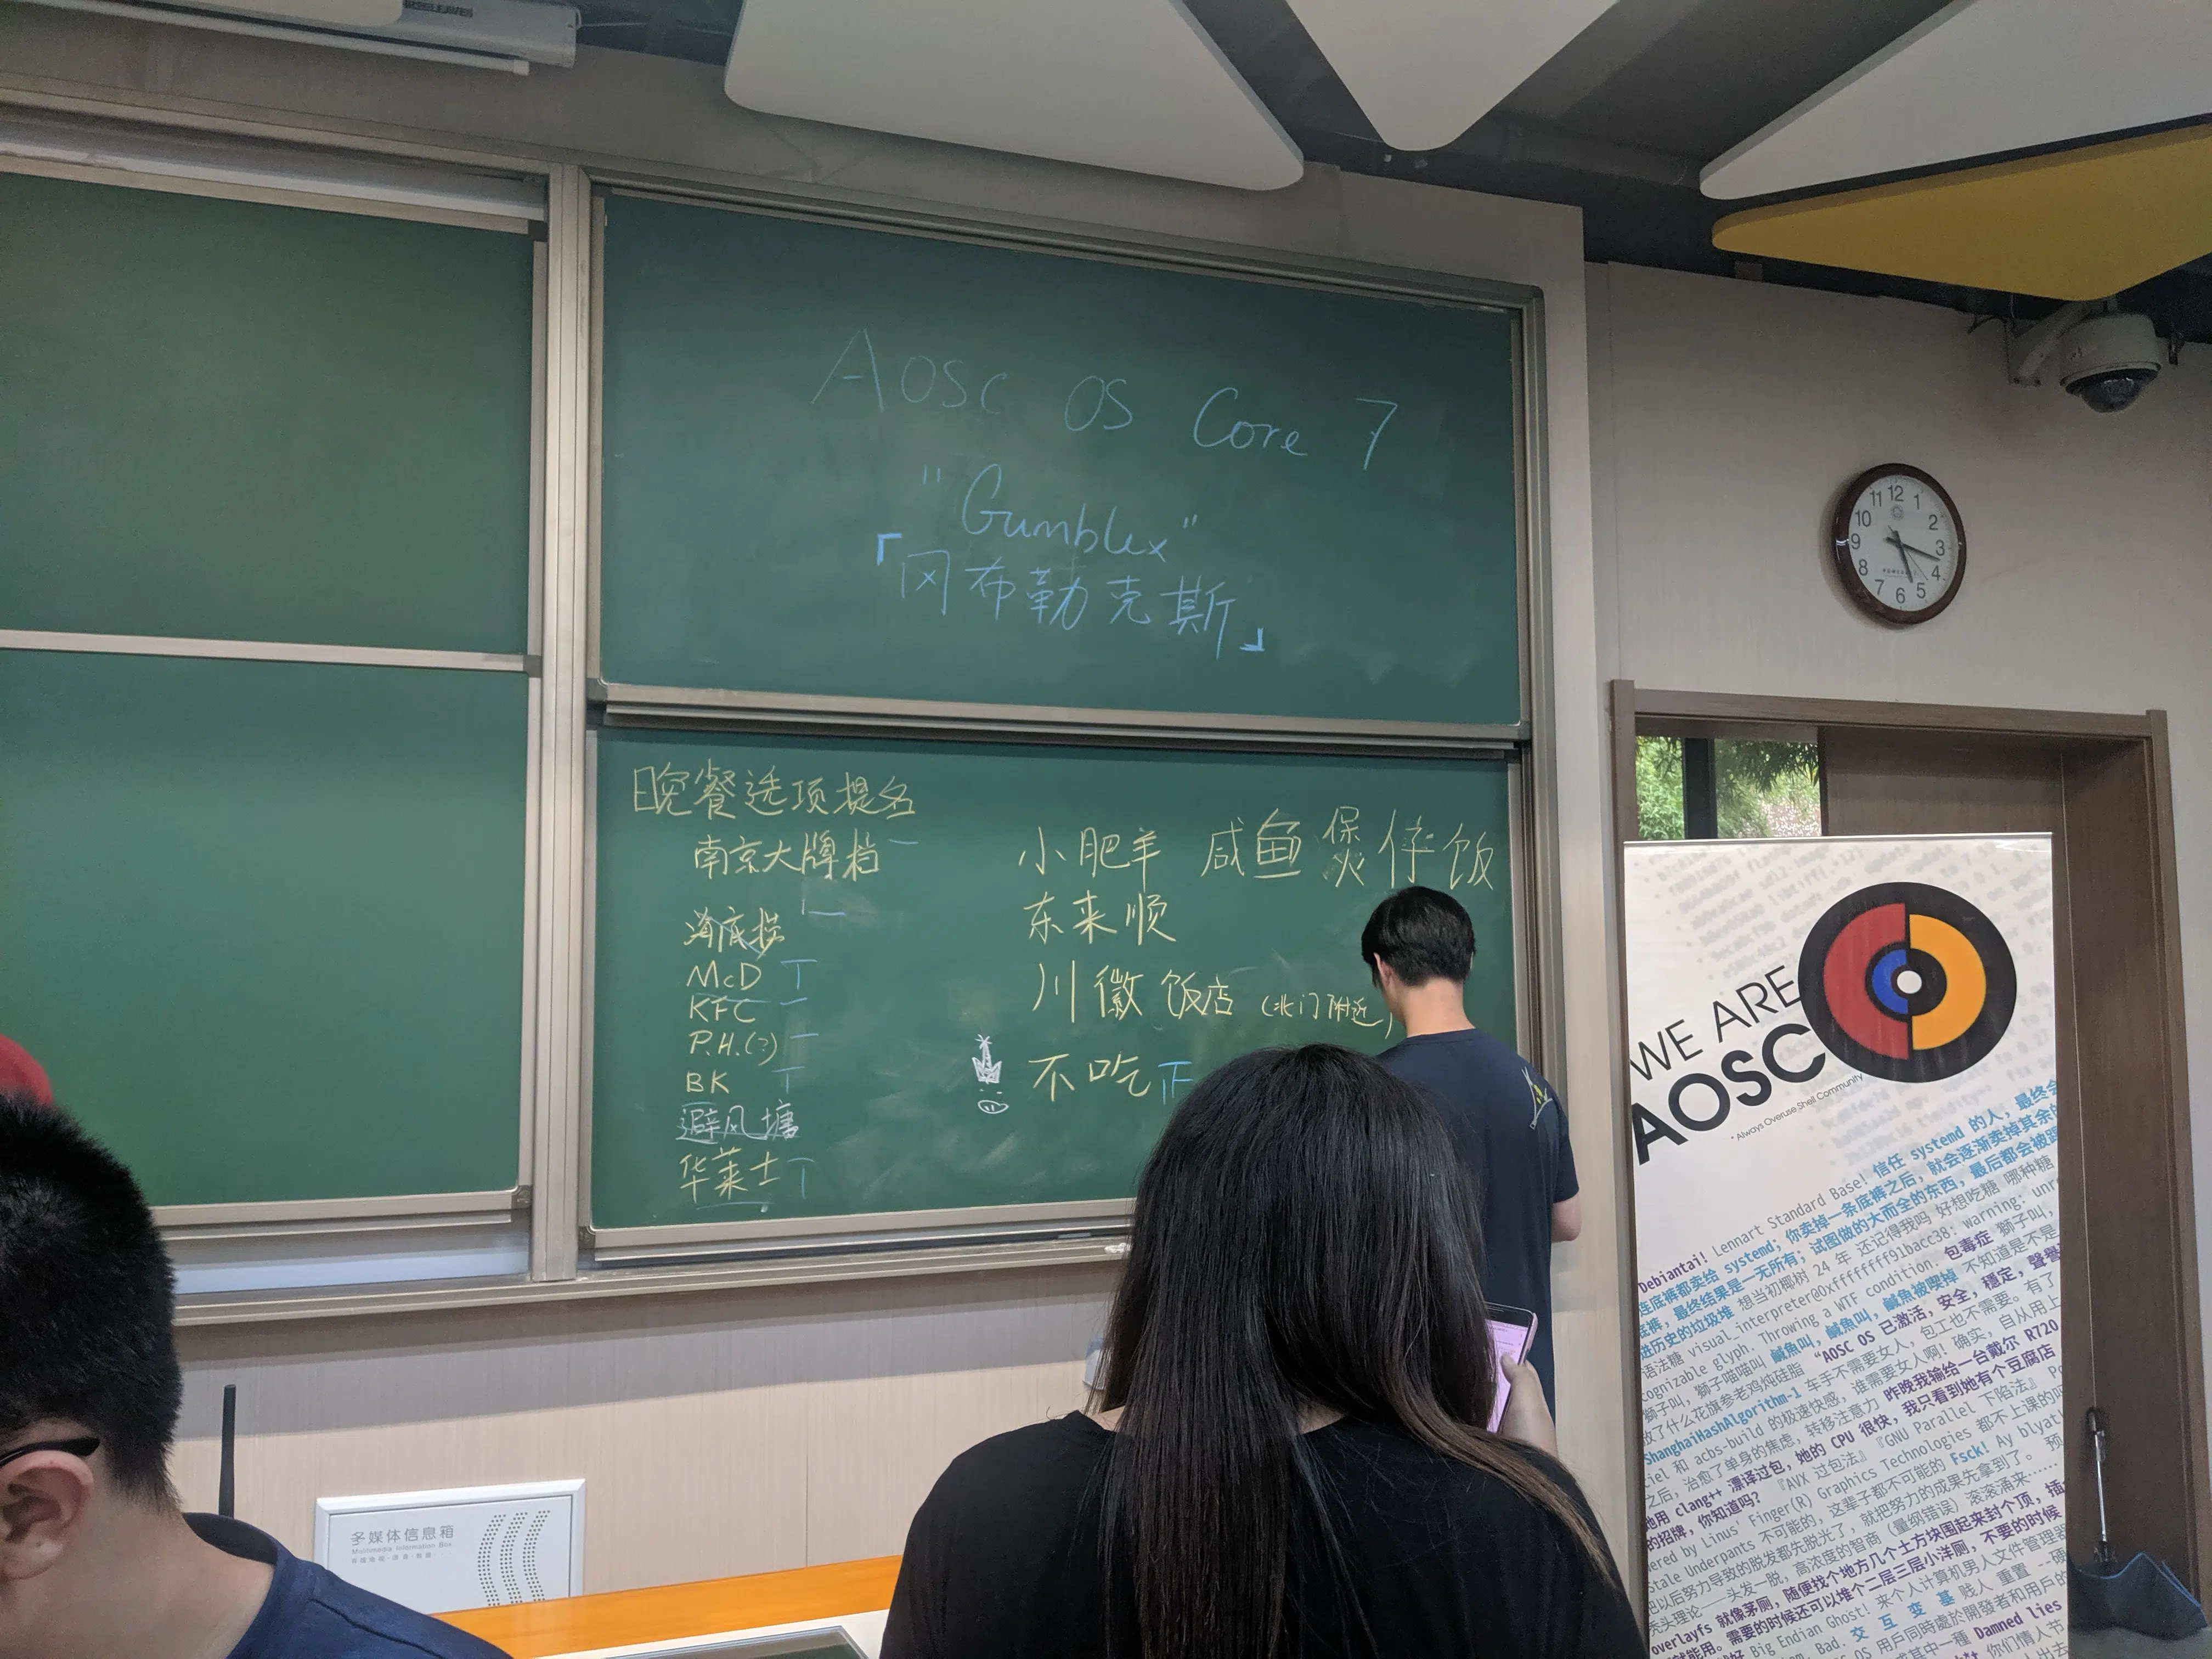 AOSC OS Core 7
"Gumblex"
「冈布勒克斯」
晚餐选项提名
南京大牌档
海底捞
McD
KFC
P.H.(?)
BK
避风塘
华莱士
小肥羊 咸鱼煲仔饭
东来顺
川徽饭店 (北门附近)
不吃 正
11 12 1
10 2
9 3
8 4
7 6 5
WE ARE
AOSC
* Always Overuse Shell Community
Debiantai! Lennart Standard Base! 信任 systemd 的人，最终会
连底裤都卖给 systemd；你卖掉一条底裤之后，就会逐渐卖掉其余的
底裤，最终结果是一无所有；试图做的大而全的东西，最后都会被踢
进历史的垃圾堆 想当初椰树 24 年 还记得我吗 好想吃糖 哪种糖
语法糖 visual_interpreter@0xffffffff91bacc38: warning:
cognizable glyph. Throwing a WTF condition. 包毒症 狮子叫，
狮子叫，狮子喵喵叫 鹹魚叫，鹹魚叫，鹹魚被喫掉 不知道是不是
放了什么花旗参老鸡炖硅脂 “AOSC OS 已激活，安全，穩定，聲譽
ShanghaiHashAlgorithm-1 车手不需要女人，包工也不需要。有了
iel 和 acbs-build 的极速快感，谁需要女人啊！确实，自从用上
之后，治愈了单身的焦虑，转移注意力 昨晚我输给一台戴尔 R720
她用 Clang++ 漂译过包，她的 CPU 很快，我只看到她有个豆腐店
的招牌，你知道吗？ 『AVX 过包法』『GNU Parallel 下陷法』
ered by Linus' Finger(R) Graphics Technologies 都不上课的吗
Stale Underpants 不可能的，这辈子都不可能的 Fsck! Ay blyat
把以后努力导致的脱发都先脱光了，就把努力的成果先拿到了。 预
秃头理论——头发一脱，高浓度的智商（量纲错误）滚滚涌来……
overlayfs 就像茅厕，随便找个地方几个土方块围起来封个顶，插
就能用。需要的时候还可以堆个二层三层小洋厕，不要的时候
好 Big Endian Ghost! 来个人计算机男人文件管理器
Bad. 交 互 变 基 贱人 重置 --硬
OS 用戶同時處於開發者和用戶的
或其中一種 Damned lies
你们情人节
多媒体信息箱
Multimedia Information Box